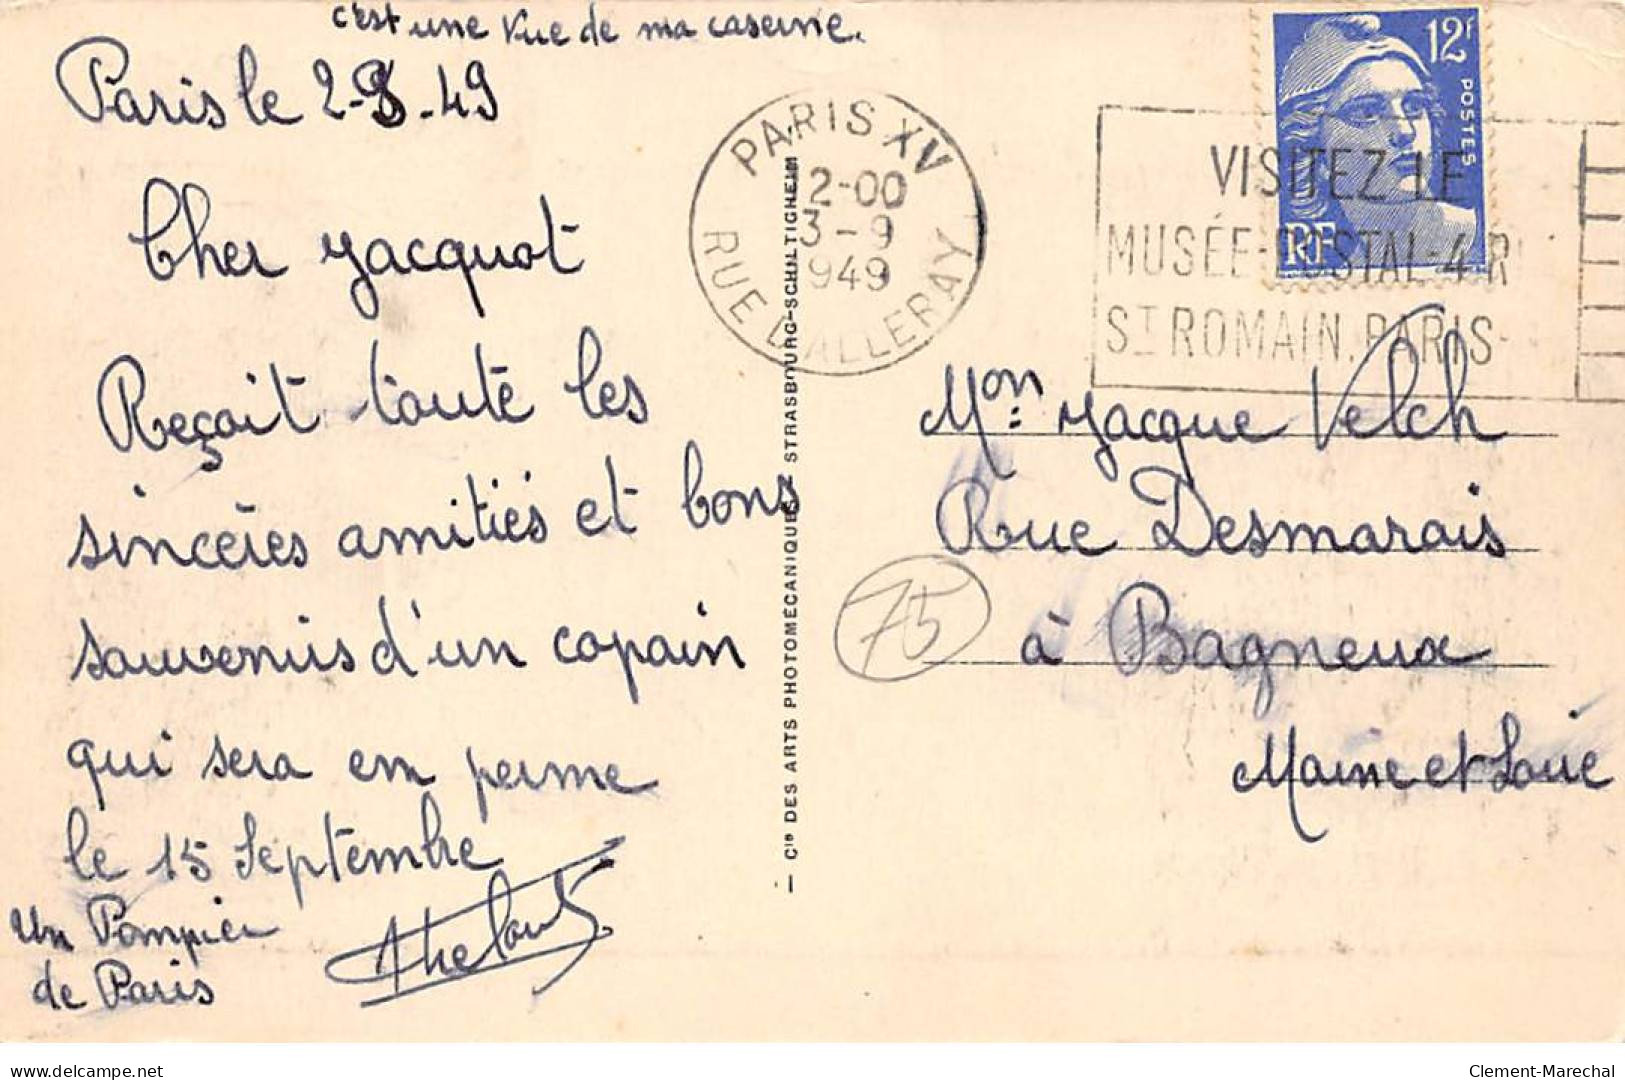 c'est une vue de ma caserne.
Paris le 2-9-49
Cher Jacquot
Reçoit toute les
sincères amitiés et bons
souvenirs d'un copain
qui sera en perme
le 15 Septembre
Un Pompier
de Paris
CIE DES ARTS PHOTOMÉCANIQUES - STRASBOURG-SCHILTIGHEIM
PARIS XV
12-00
3-9
1949
RUE D'ALLERAY
12F
POSTES
RF
VISITEZ LE
MUSÉE POSTAL-4 R
ST ROMAIN. PARIS-
Mon: Jacque Velch
Rue Desmarais
à Bagneux
Maine et Loire
75
delcampe.net
Clement-Marechal